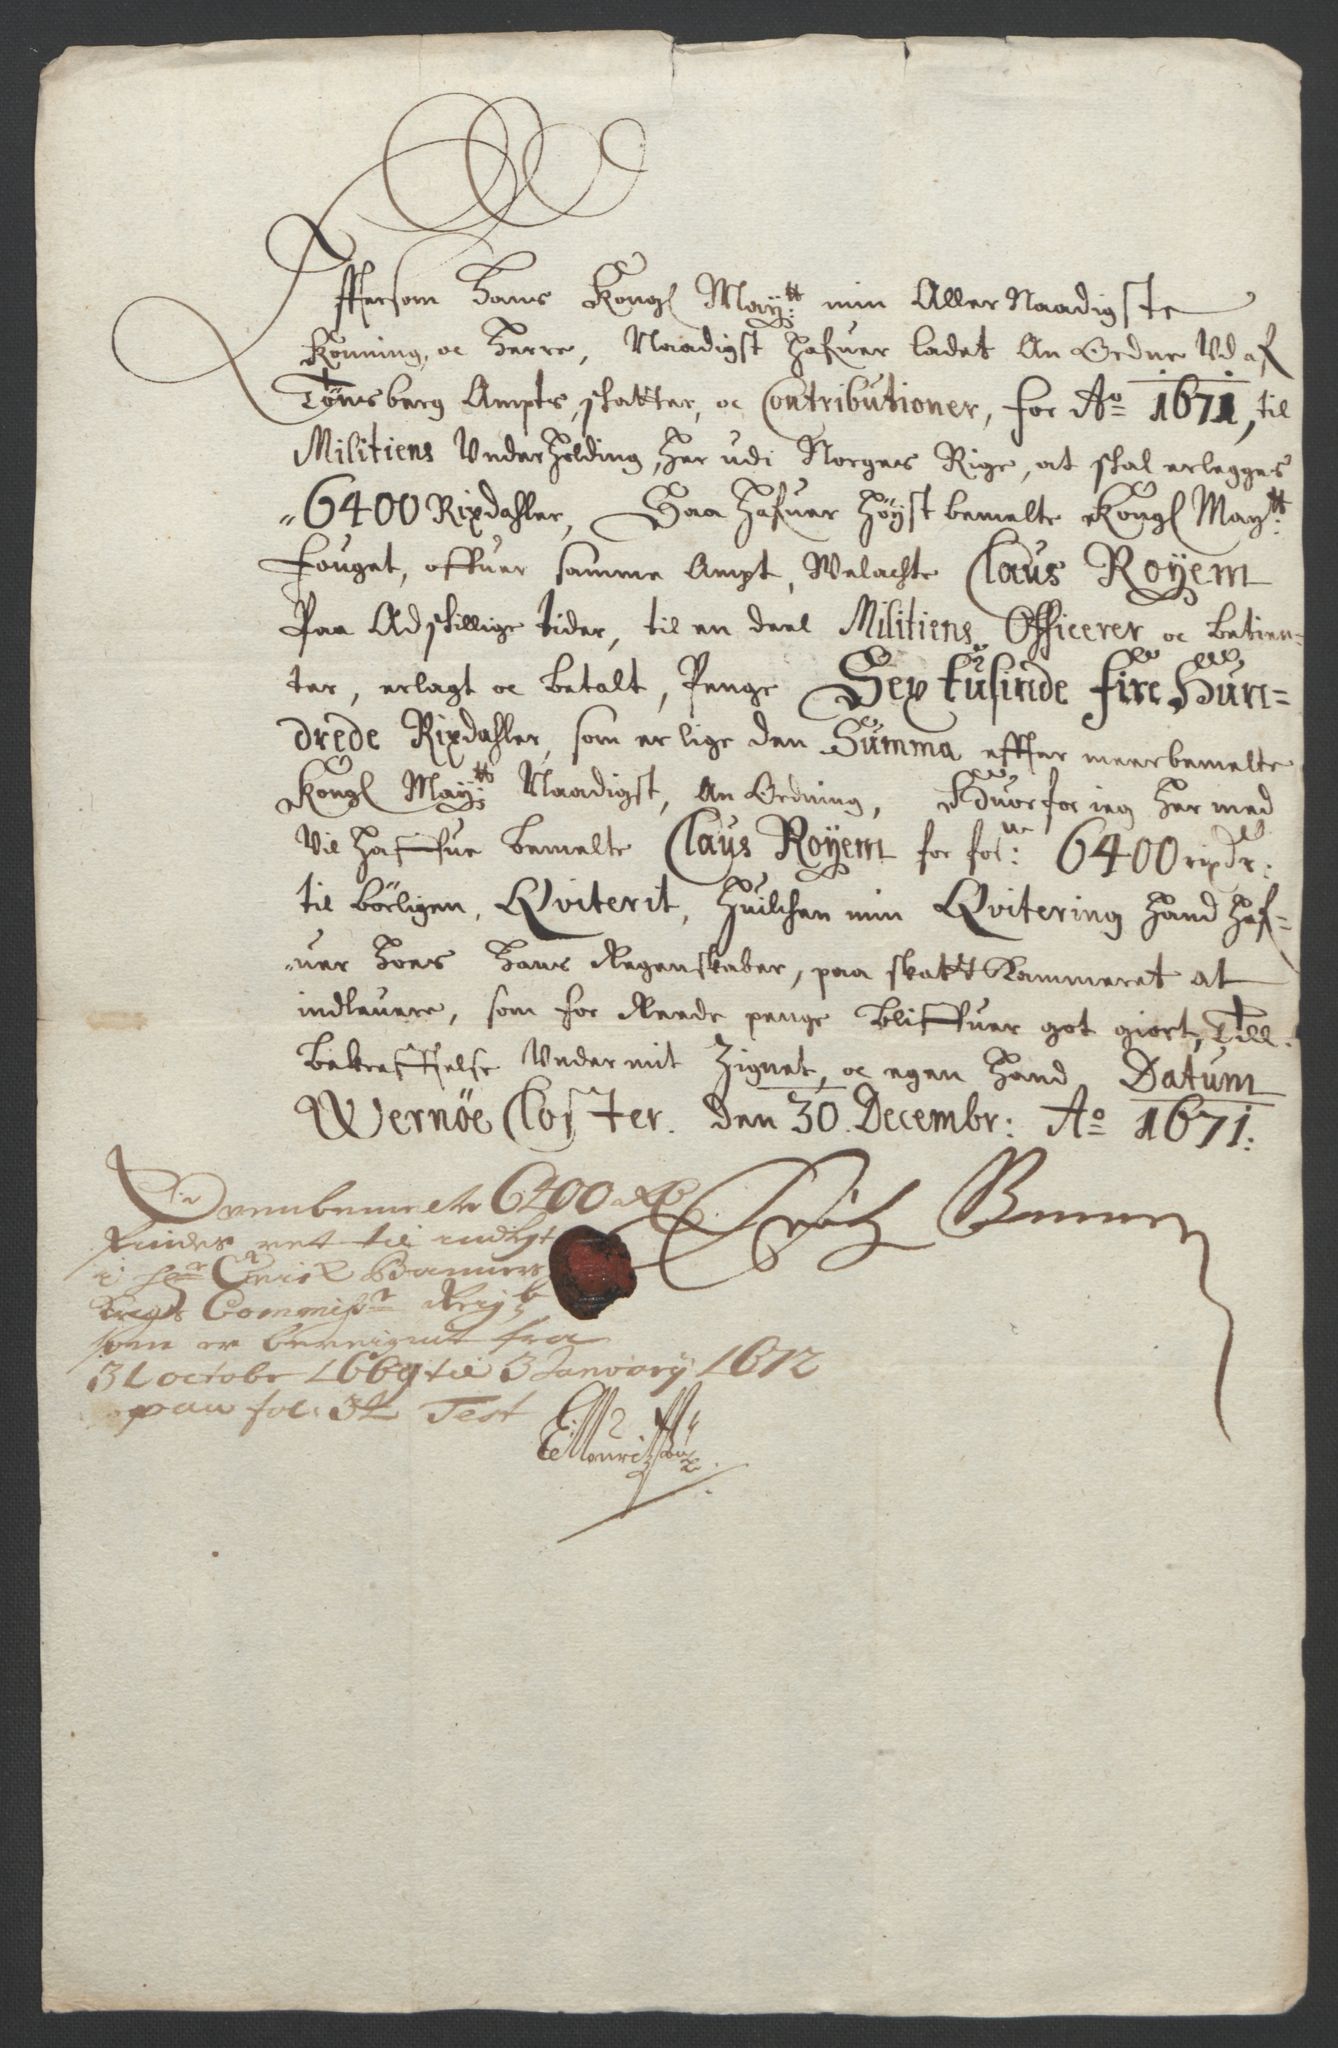 Effersom Hans Kongl May:tt min Aller Naadigste
Konning, oc Herre, Naadigst Hafuer ladet An Ordne Vd af
Tønsberg Ampts, skatter, oc Contributioner, for Ao 1671, til
Militiens Vnderholding, Her udi Norges Rige, at skal erlegges
6400 Rixdahler, Saa Hafuer Høyst bemelte Kongl May:tt
Fouget, offuer samme Ampt, Welachte Claus Royem
Paa Adskillige tider, til en deel Militiens Officerer oc Betien-
ter, erlagt oc betalt, Penge Sex tusinde fire Hun=
drede Rixdahler, som er lige den Summa effter meerbemelte
Kongl May:tt Naadigst, An Ordning, Huorfor ieg Her med
Vil Haffue bemelte Claus Royem for for:ne 6400 rixdr:
til børligen, Qviterit, Huilchen min Qvitering Hand Haf=
uer Hoes Hans Regenskaber, paa skatt Kammeret at
indleuere, som for Reede penge bliffuer got giort, Till
Bekrefftelse Vnder mit Zignet, oc egen Hand Datum
Wernöe Closter. den 30. Decembr: Ao 1671.
Ovenbemelte 6400 Rd
findes ret til indtegt
i Hr Krigs Banners
Krigs Commiss:r Regensk:
som er bereignit fra
31 october 1669 til 3 January 1672
paa fol: 32 Test